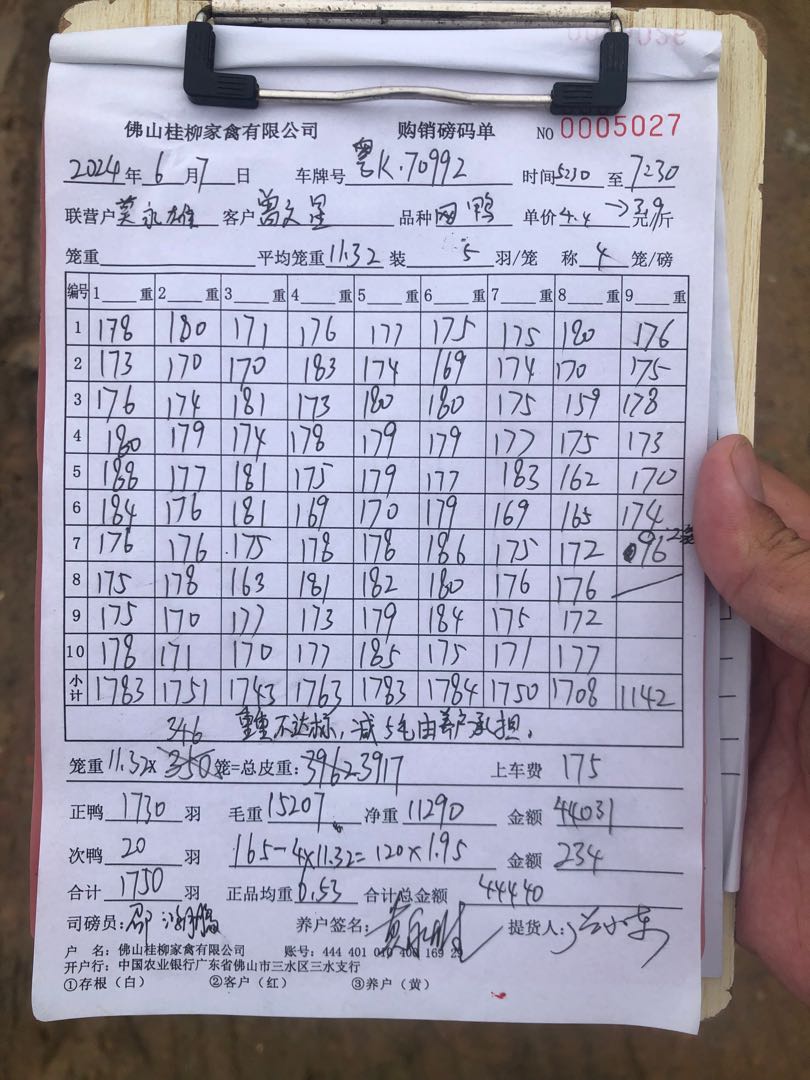 佛山桂柳家禽有限公司 购销磅码单 NO 0005027
2024年6月7日 车牌号 粤K·70992 时间5230 至 7230
联营户 莫永雄 客户 曾文星 品种 网鸭 单价 4.4 →3.9 元/斤
笼重 平均笼重 11.32 装 5 羽/笼 称 4 笼/磅
编号 1 重 2 重 3 重 4 重 5 重 6 重 7 重 8 重 9 重
1 178 180 171 176 177 175 175 180 176
2 173 170 170 183 174 169 174 170 175
3 176 174 181 173 180 180 175 159 178
4 180 179 174 178 179 179 177 175 173
5 188 177 181 175 179 177 183 162 170
6 184 176 181 169 170 179 169 165 174
7 176 176 175 178 178 186 175 172 96 2笼
8 175 178 163 181 182 180 176 176
9 175 170 177 173 179 184 175 172
10 178 171 170 177 185 175 171 177
小计 1783 1751 1743 1763 1783 1784 1750 1708 1142
346 重量不达标，减5毛由养户承担.
笼重 11.32× 350 笼=总皮重: 3962 3917 上车费 175
正鸭 1730 羽 毛重 15207 净重 11290 金额 44031
次鸭 20 羽 165-4×11.32=120×1.95 金额 234
合计 1750 羽 正品均重 6.53 合计总金额 44440
司磅员: 邵 养户签名: 提货人:
户 名: 佛山桂柳家禽有限公司 账号: 444 401 010 400 169 29
开户行: 中国农业银行广东省佛山市三水区三水支行
①存根（白） ②客户（红） ③养户（黄）